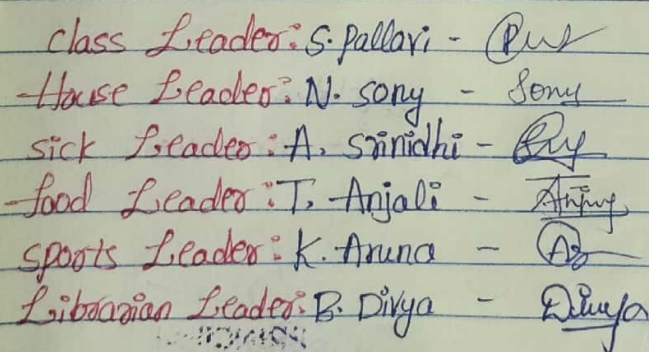 class Leader: S. pallavi -
House Leader: N. sony - Sony
sick Leader: A. Srinidhi -
food Leader: T. Anjali -
sports Leader: K. Aruna -
Librarian Leader: B. Divya - Divya